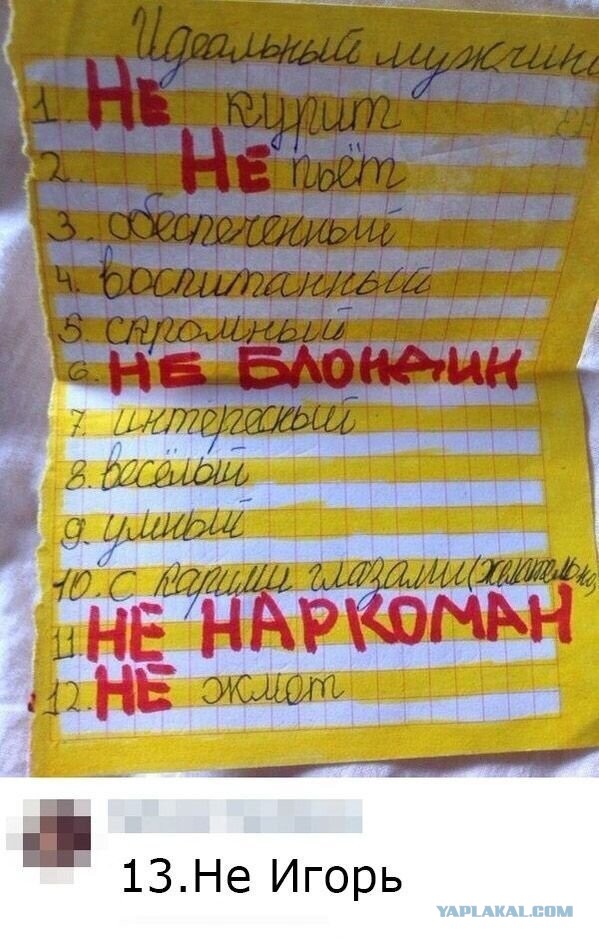 Идеальный мужчина
1. НЕ курит
2. НЕ пьёт
3. обеспеченный
4. воспитанный
5. скромный
6. НЕ БЛОНДИН
7. интересный
8. весёлый
9. умный
10. с карими глазами (желательно)
11. НЕ НАРКОМАН
12. НЕ жмот
13.Не Игорь
YAPLAKAL.COM